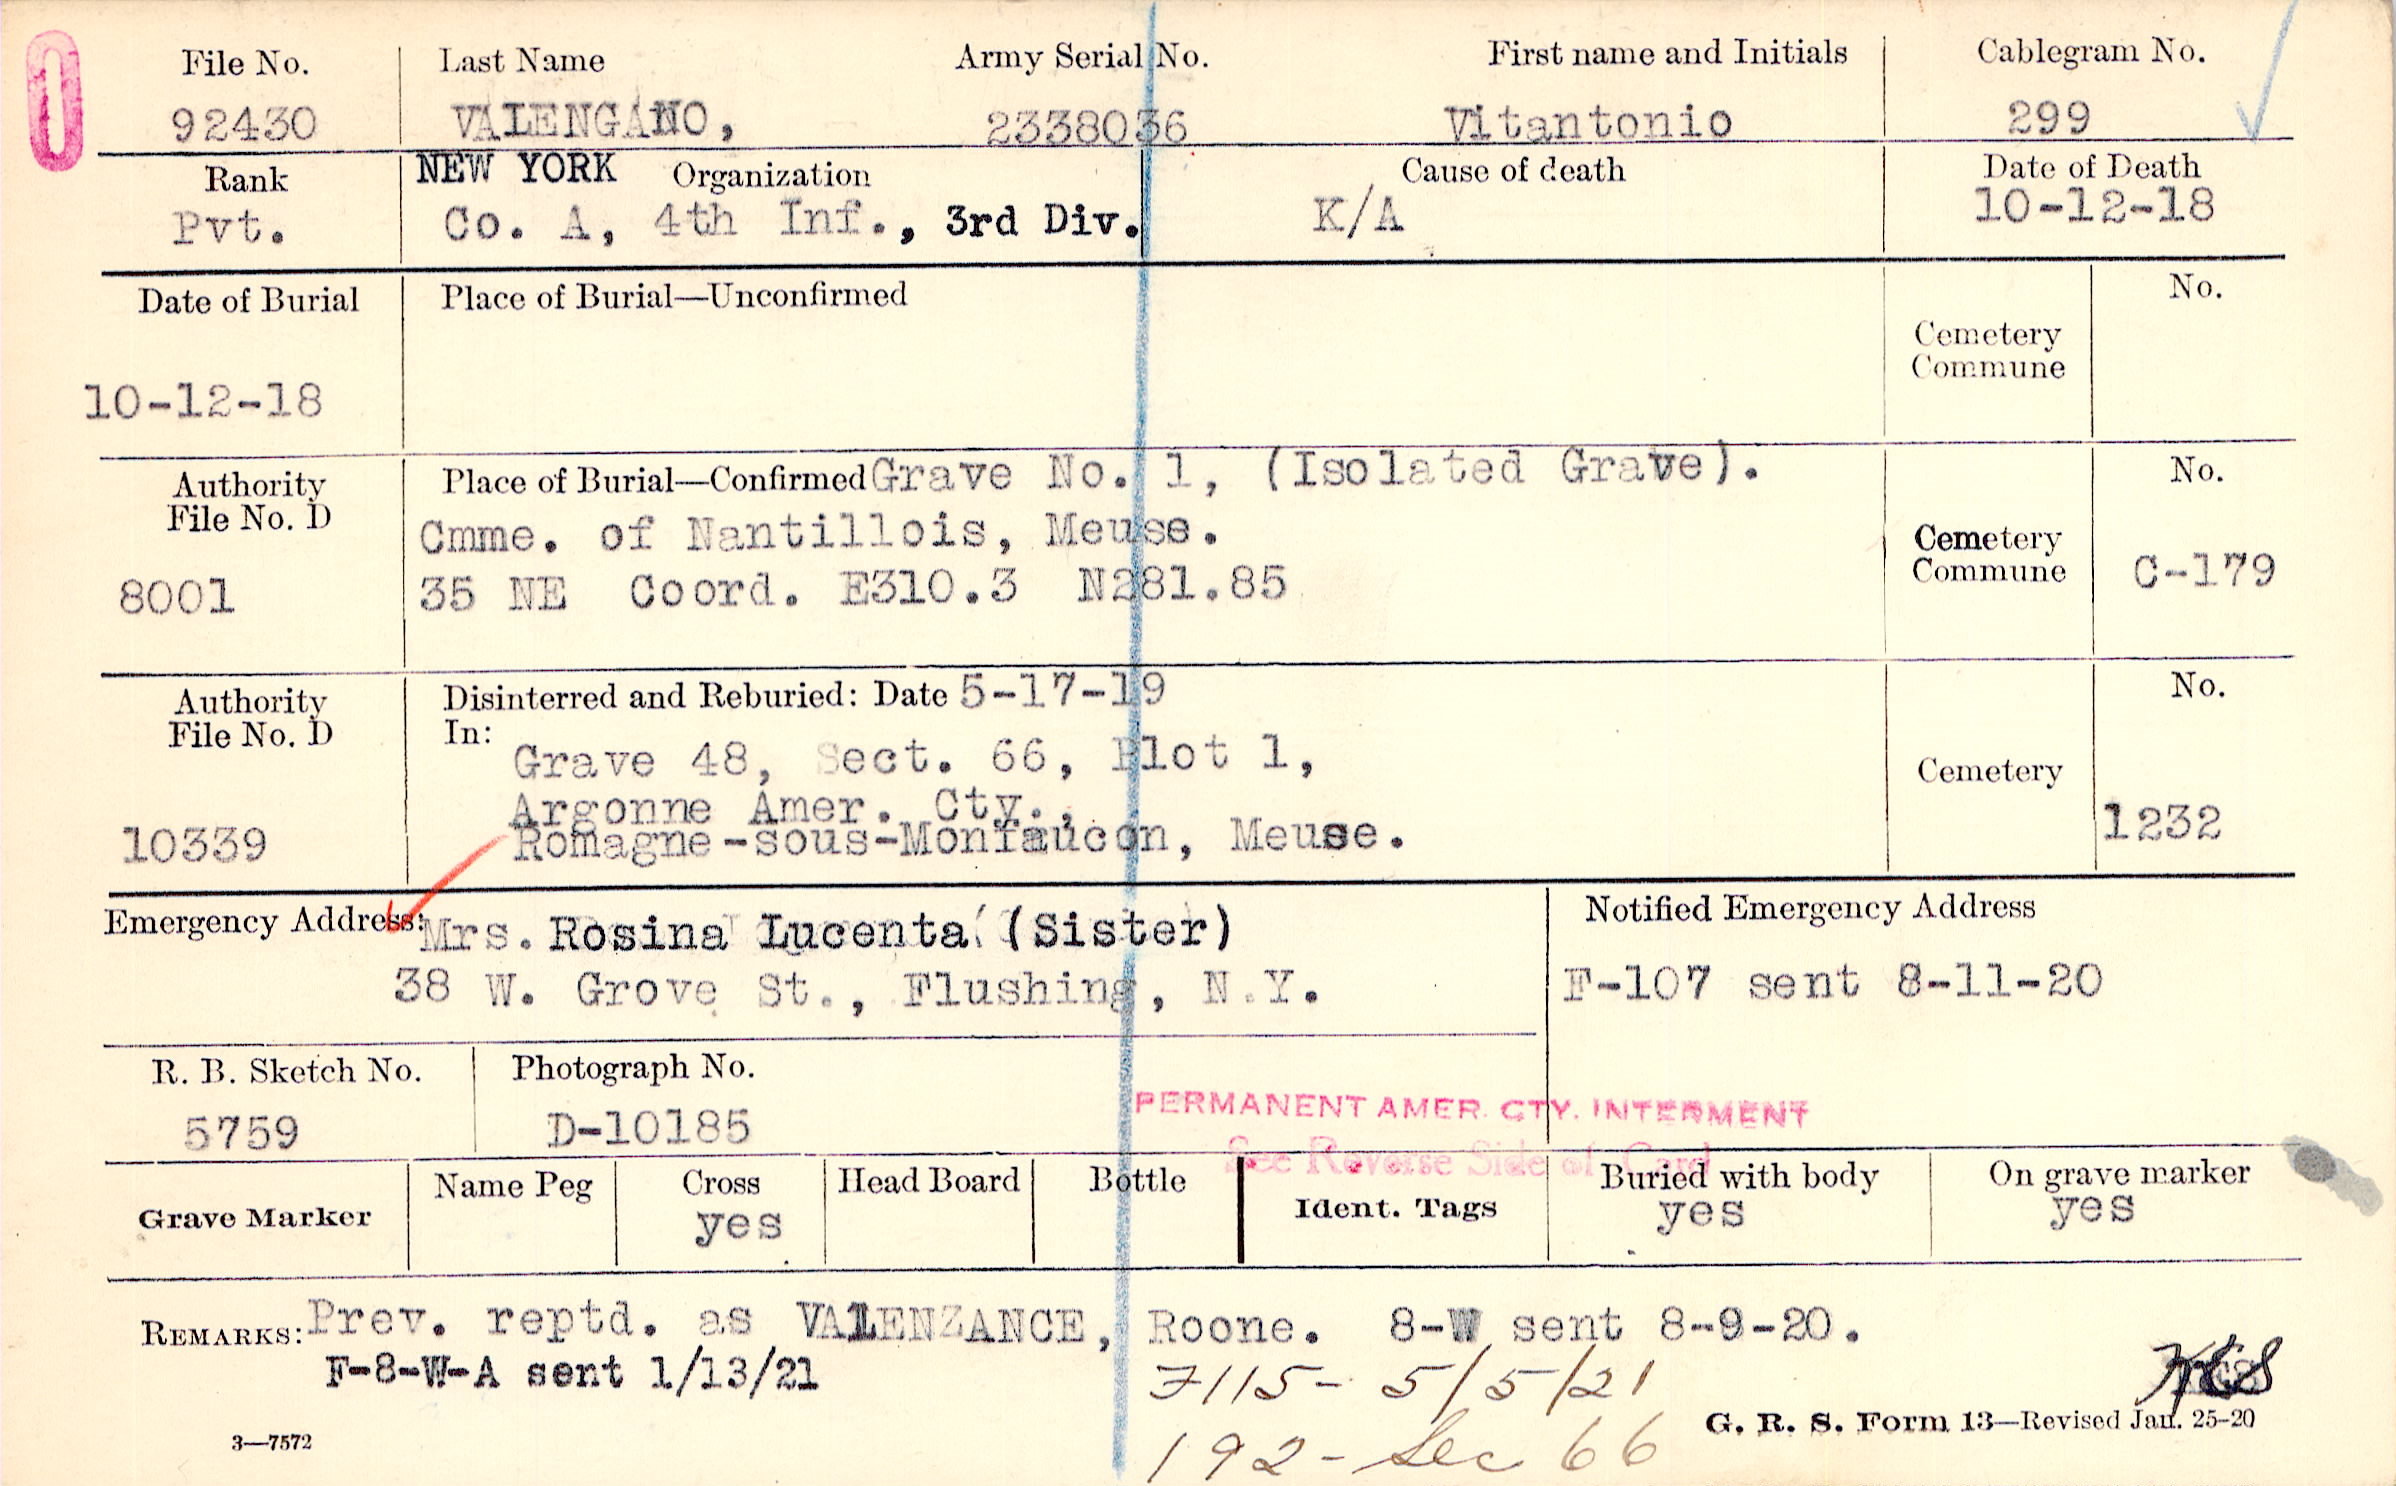 File No. Last Name Army Serial No. First name and Initials Cablegram No.
92430 VALENGANO, 2338036 Vitantonio 299
Rank NEW YORK Organization Cause of death Date of Death
Pvt. Co. A, 4th Inf., 3rd Div. K/A 10-12-18
Date of Burial Place of Burial—Unconfirmed No.
Cemetery
Commune
10-12-18
Authority Place of Burial—Confirmed Grave No. 1, (Isolated Grave). No.
File No. D Cmme. of Nantillois, Meuse. Cemetery
8001 35 NE Coord. E310.3 N281.85 Commune C-179
Authority Disinterred and Reburied: Date 5-17-19 No.
File No. D In:
Grave 48, Sect. 66, Plot 1, Cemetery
Argonne Amer. Cty.,
10339 Romagne-sous-Monfaucon, Meuse. 1232
Emergency Address: Mrs. Rosina Lucenta (Sister) Notified Emergency Address
38 W. Grove St., Flushing, N.Y. F-107 sent 8-11-20
R. B. Sketch No. Photograph No.
5759 D-10185
PERMANENT AMER. CTY. INTERMENT
See Reverse Side of Card
Grave Marker Name Peg Cross Head Board Bottle Ident. Tags Buried with body On grave marker
yes yes yes
REMARKS: Prev. reptd. as VALENZANCE, Roone. 8-W sent 8-9-20.
F-8-W-A sent 1/13/21
7115- 5/5/21
192- Sec 66
3—7572 G. R. S. Form 13—Revised Jan. 25-20